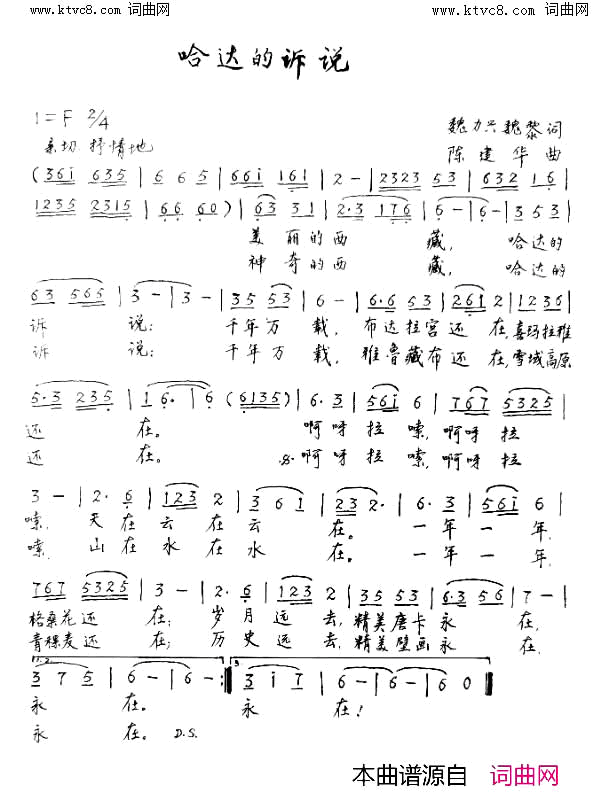 www.ktvc8.com 词曲网 www.ktvc8.com 词曲网
哈达的诉说
1=F 2/4
亲切 抒情地
魏力兴魏黎词
陈建华曲
(361 635 | 6 6 5 | 661 161 | 2 - | 2323 53 | 632 16 |
1235 2315 | 66 60) | 63 31 | 2·3 176 | 6 - | 6 - | 3 53 |
美丽的西藏，哈达的
神奇的西藏，哈达的
63 565 | 3 - | 3 - | 35 53 | 6 - | 6·6 53 | 261 2 | 1236 |
诉说：千年万载，布达拉宫还在，喜玛拉雅
诉说：千年万载，雅鲁藏布还在，雪域高原
5·3 235 | 16· | 6 (6135) | 6·3 | 561 6 | 767 5325 |
还在。啊呀拉嗦，啊呀拉
还在。.S.啊呀拉嗦，啊呀拉
3 - | 2·6 | 123 2 | 3 6 1 | 23 2· | 6·3 | 561 6 |
嗦，天在云在云在。一年一年，
嗦，山在水在水在。一年一年，
767 5325 | 3 - | 2·6 | 123 2 | 35 53 | 6·3 56 | 7 - |
格桑花还在；岁月远去，精美唐卡永在，
青稞麦还在；历史远去，精美壁画永在，
1.2. 3.
3 7 5 | 6 - | 6 - :|| 3 i 7 | 6 - | 6 - | 6 0 ||
永在。永在！
永在。D.S.
本曲谱源自 词曲网